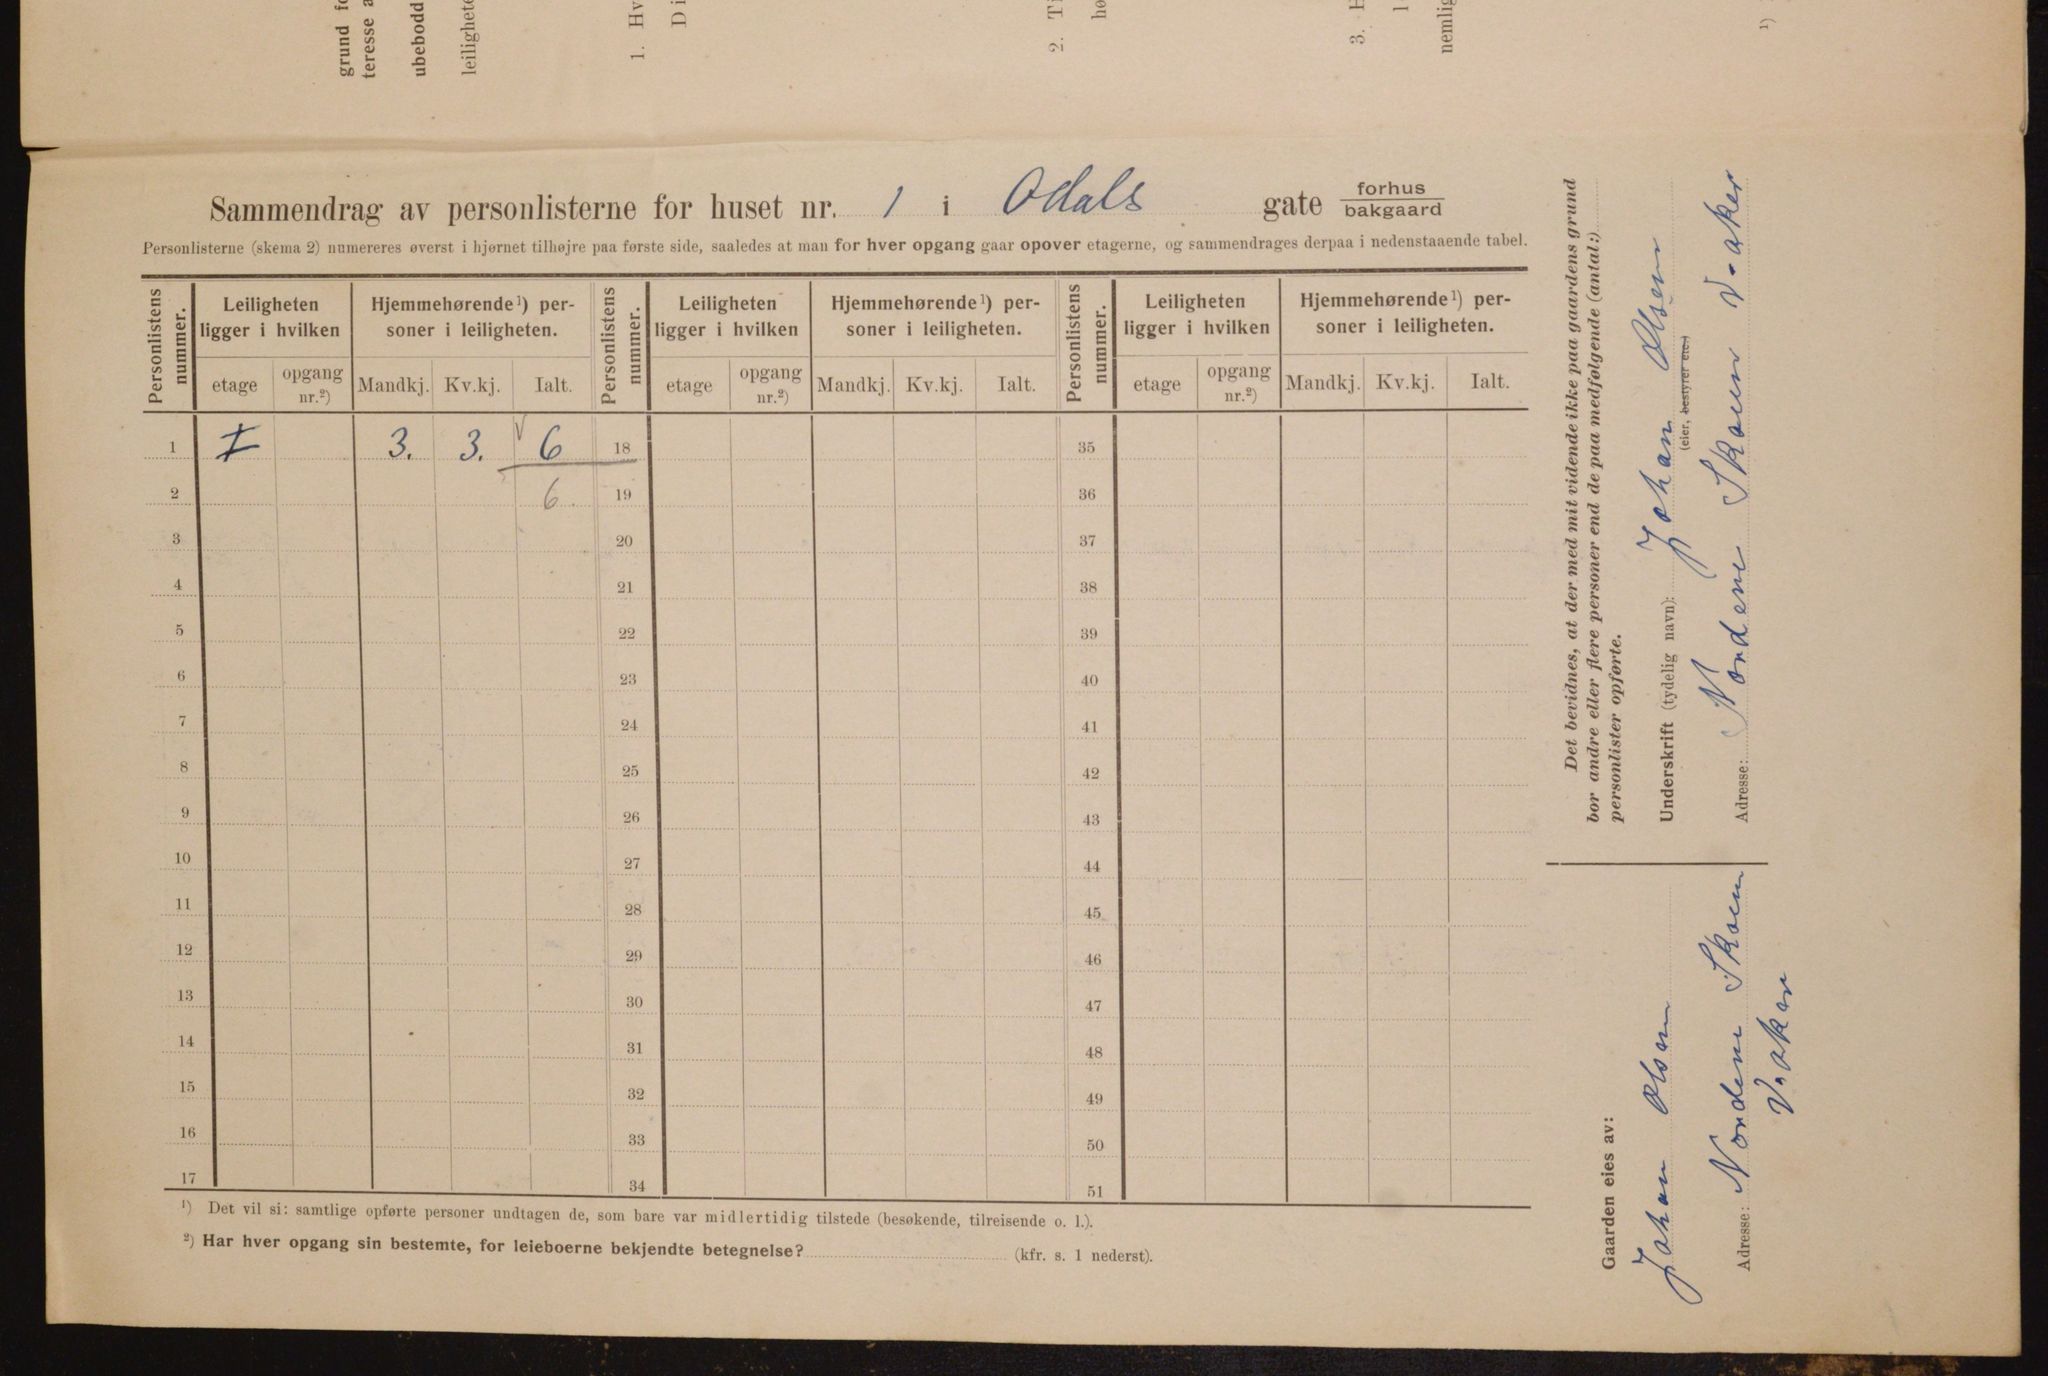 grund fo
teresse a
ubebodd
leilighete
1. Hv
Di
2. Ti
hø
3. H
nemlig
1)
Sammendrag av personlisterne for huset nr. 1 i Odals gate forhus
bakgaard
Personlisterne (skema 2) numereres øverst i hjørnet tilhøjre paa første side, saaledes at man for hver opgang gaar opover etagerne, og sammendrages derpaa i nedenstaaende tabel.
Personlistens nummer. Leiligheten ligger i hvilken Hjemmehørende¹) personer i leiligheten. Personlistens nummer. Leiligheten ligger i hvilken Hjemmehørende¹) personer i leiligheten. Personlistens nummer. Leiligheten ligger i hvilken Hjemmehørende¹) personer i leiligheten.
etage opgang nr.²) Mandkj. Kv.kj. Ialt. etage opgang nr.²) Mandkj. Kv.kj. Ialt. etage opgang nr.²) Mandkj. Kv.kj. Ialt.
1 I 3. 3. 6 18 35
2 6. 19 36
3 20 37
4 21 38
5 22 39
6 23 40
7 24 41
8 25 42
9 26 43
10 27 44
11 28 45
12 29 46
13 30 47
14 31 48
15 32 49
16 33 50
17 34 51
¹) Det vil si: samtlige opførte personer undtagen de, som bare var midlertidig tilstede (besøkende, tilreisende o. l.).
²) Har hver opgang sin bestemte, for leieboerne bekjendte betegnelse? (kfr. s. 1 nederst).
Det bevidnes, at der med mit vidende ikke paa gaardens grund
bor andre eller flere personer end de paa medfølgende (antal:)
personlister opførte.
Underskrift (tydelig navn): Johan Olsen
(eier, bestyrer etc.)
Adresse: Nordene Skoien V. aker
Gaarden eies av:
Johan Olsen
Adresse: Nordene Skoien
V. aker